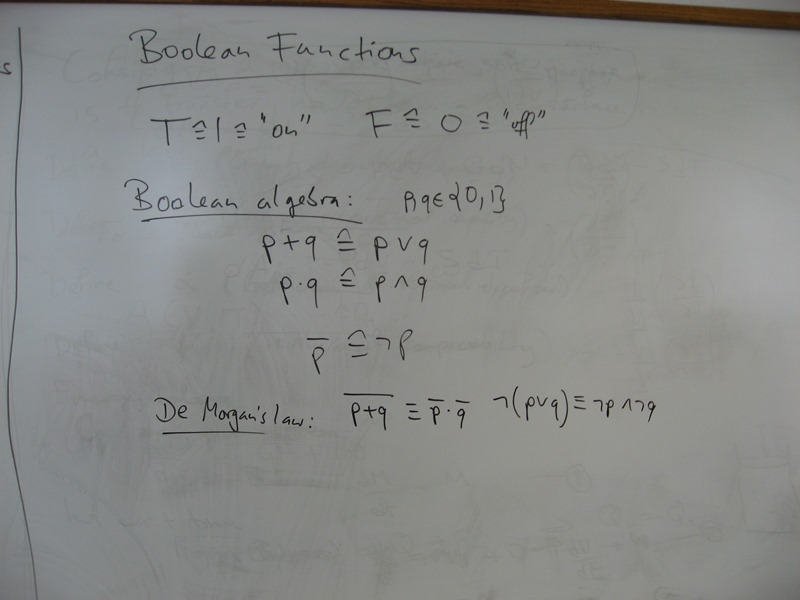 Boolean Functions
T ≙ 1 ≙ "on" F ≙ 0 ≙ "off"
Boolean algebra: p,q∈{0,1}
p+q ≙ p∨q
p·q ≙ p∧q
p̅ ≙ ¬p
De Morgan's law: \overline{p+q} ≡ p̅·q̅ ¬(p∨q)≡¬p∧¬q